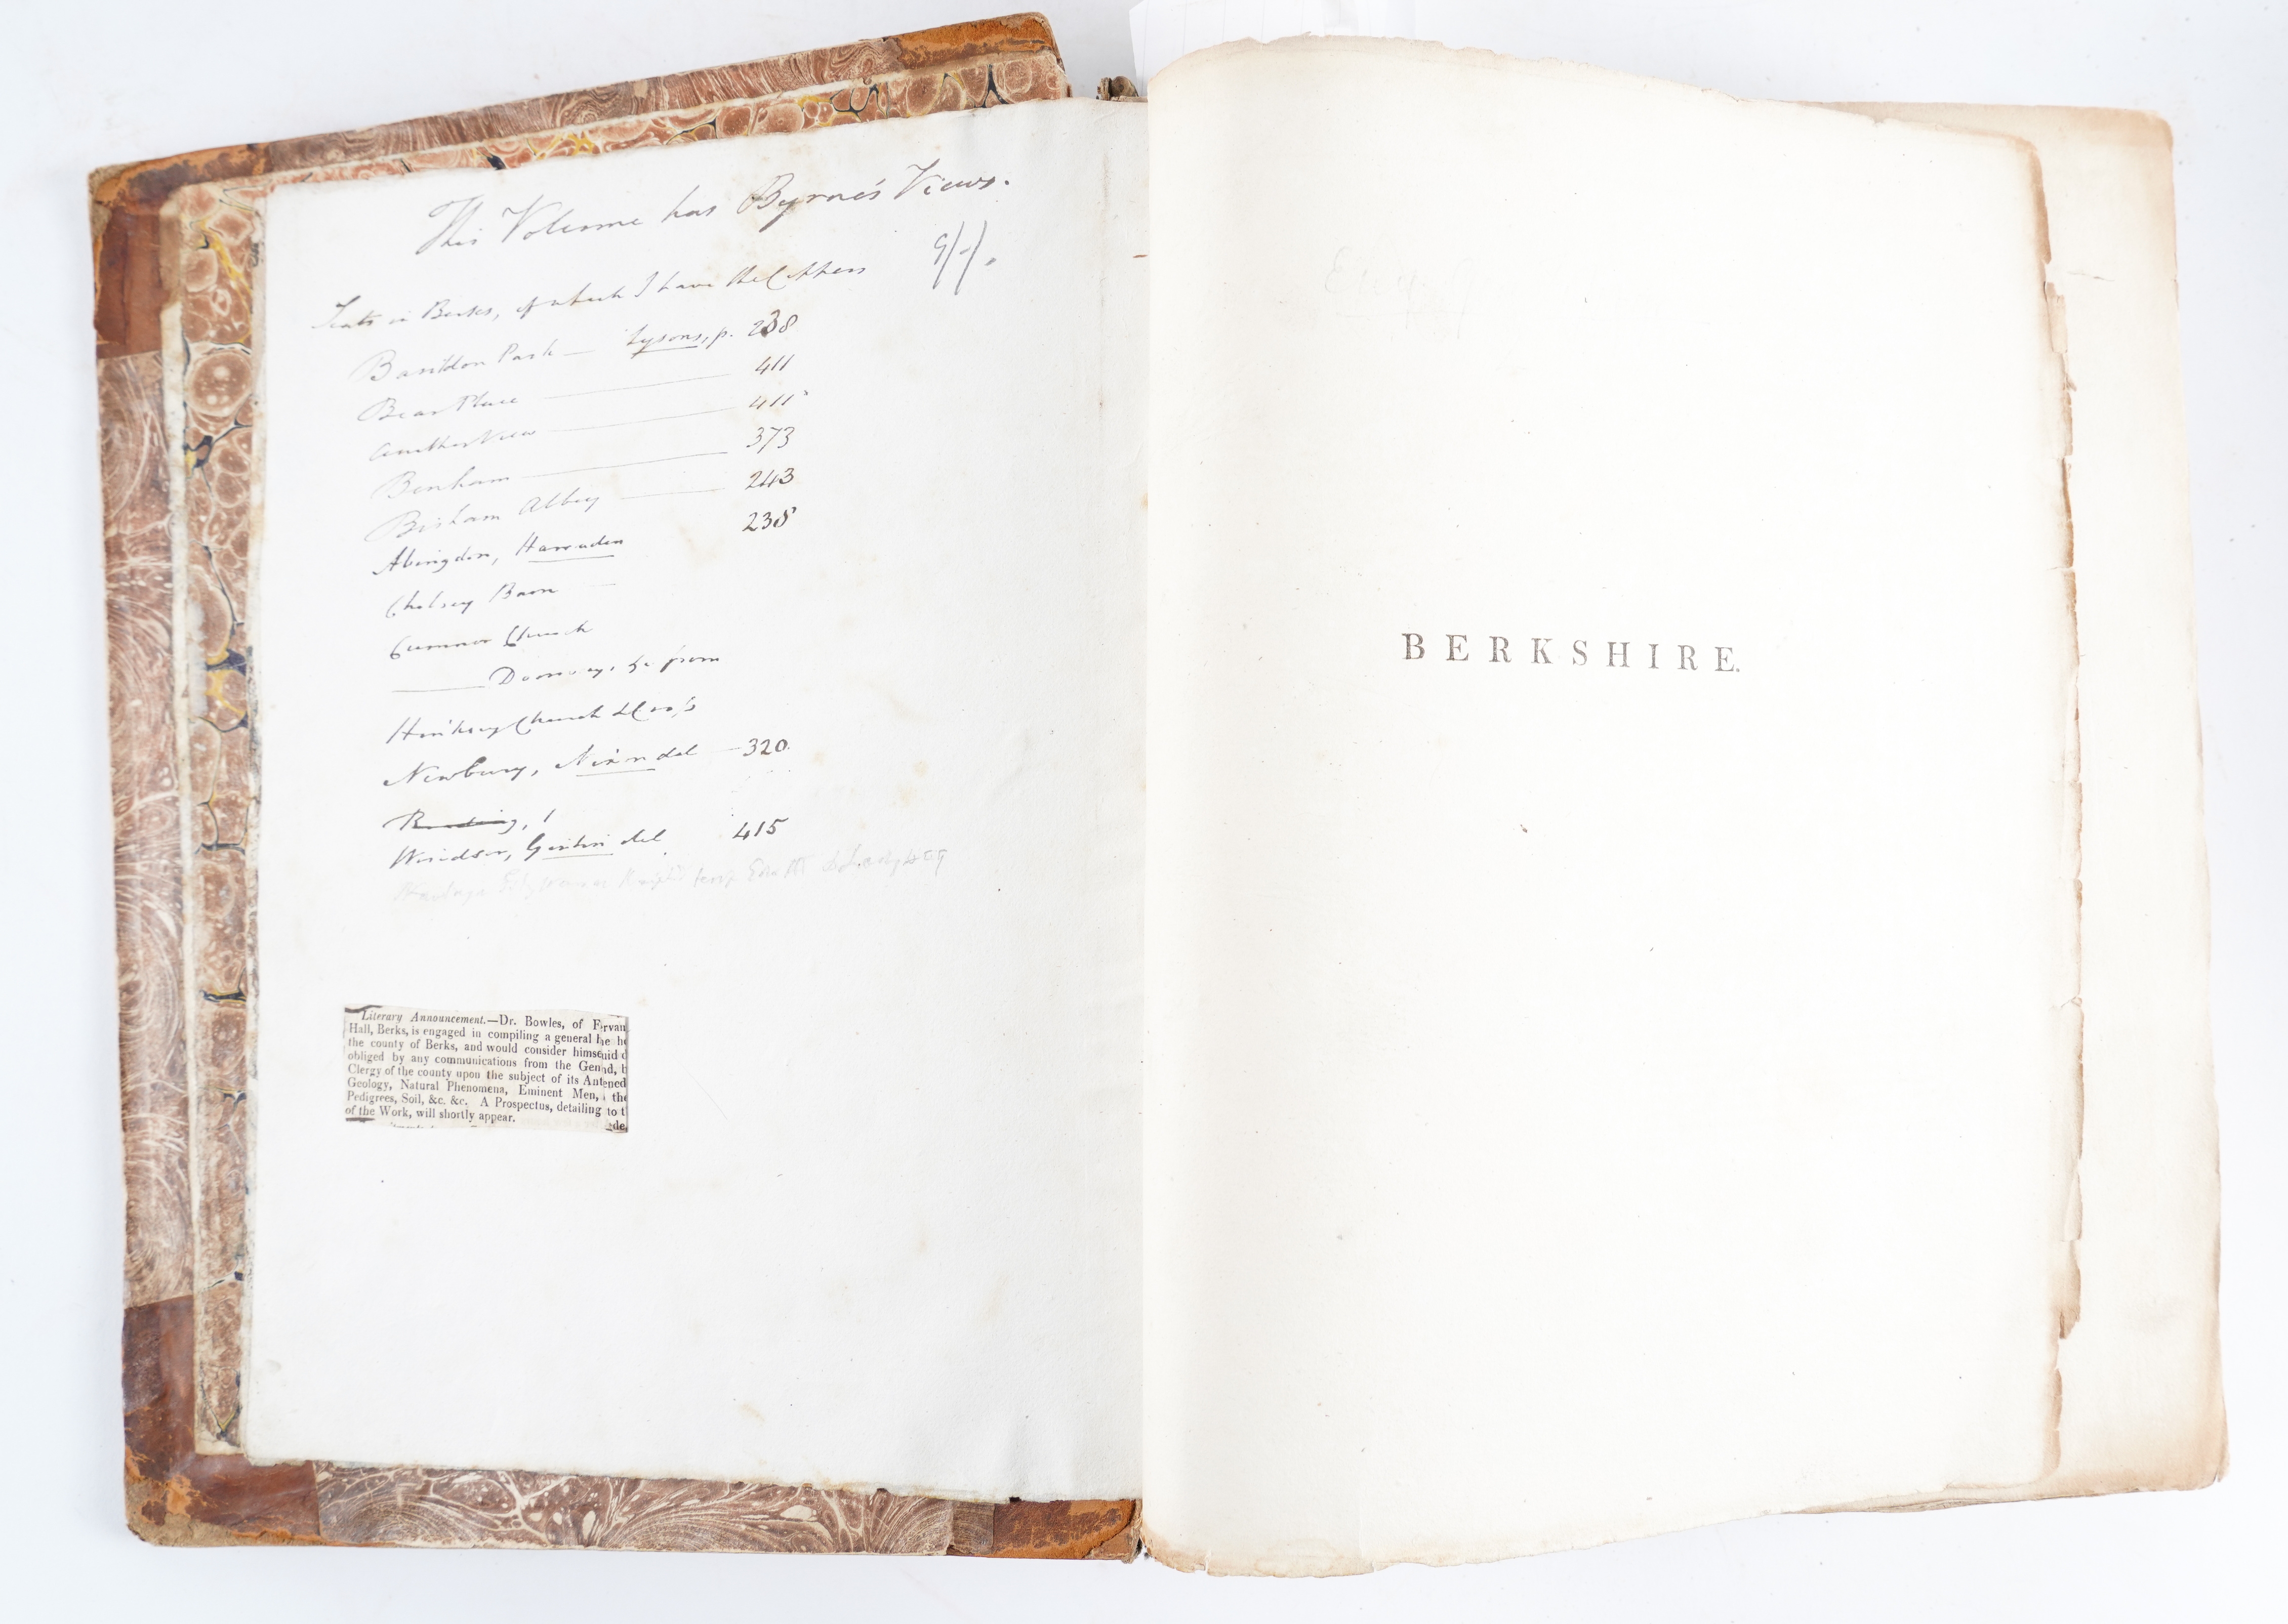 This Volume has Byrne's Views.
9/-/.
Seats in Berks, of which I have the Coppers
Basildon Park — Lysons, p. 238
Bear Place — 411
another View — 411
Benham — 373
Bisham Abbey — 243
Abingdon, 238
Cholsey Barn —
Cumnor Church
— Doorway, &c from
Hinksey Church
Newbury, Nixon del — 320
Reading, 1
Windsor, del 415
Literary Announcement.—Dr. Bowles, of F
Hall, Berks, is engaged in compiling a general h
the county of Berks, and would consider himse
obliged by any communications from the Gen
Clergy of the county upon the subject of its Ant
Geology, Natural Phenomena, Eminent Men,
Pedigrees, Soil, &c. &c. A Prospectus, detailing
of the Work, will shortly appear.
BERKSHIRE.